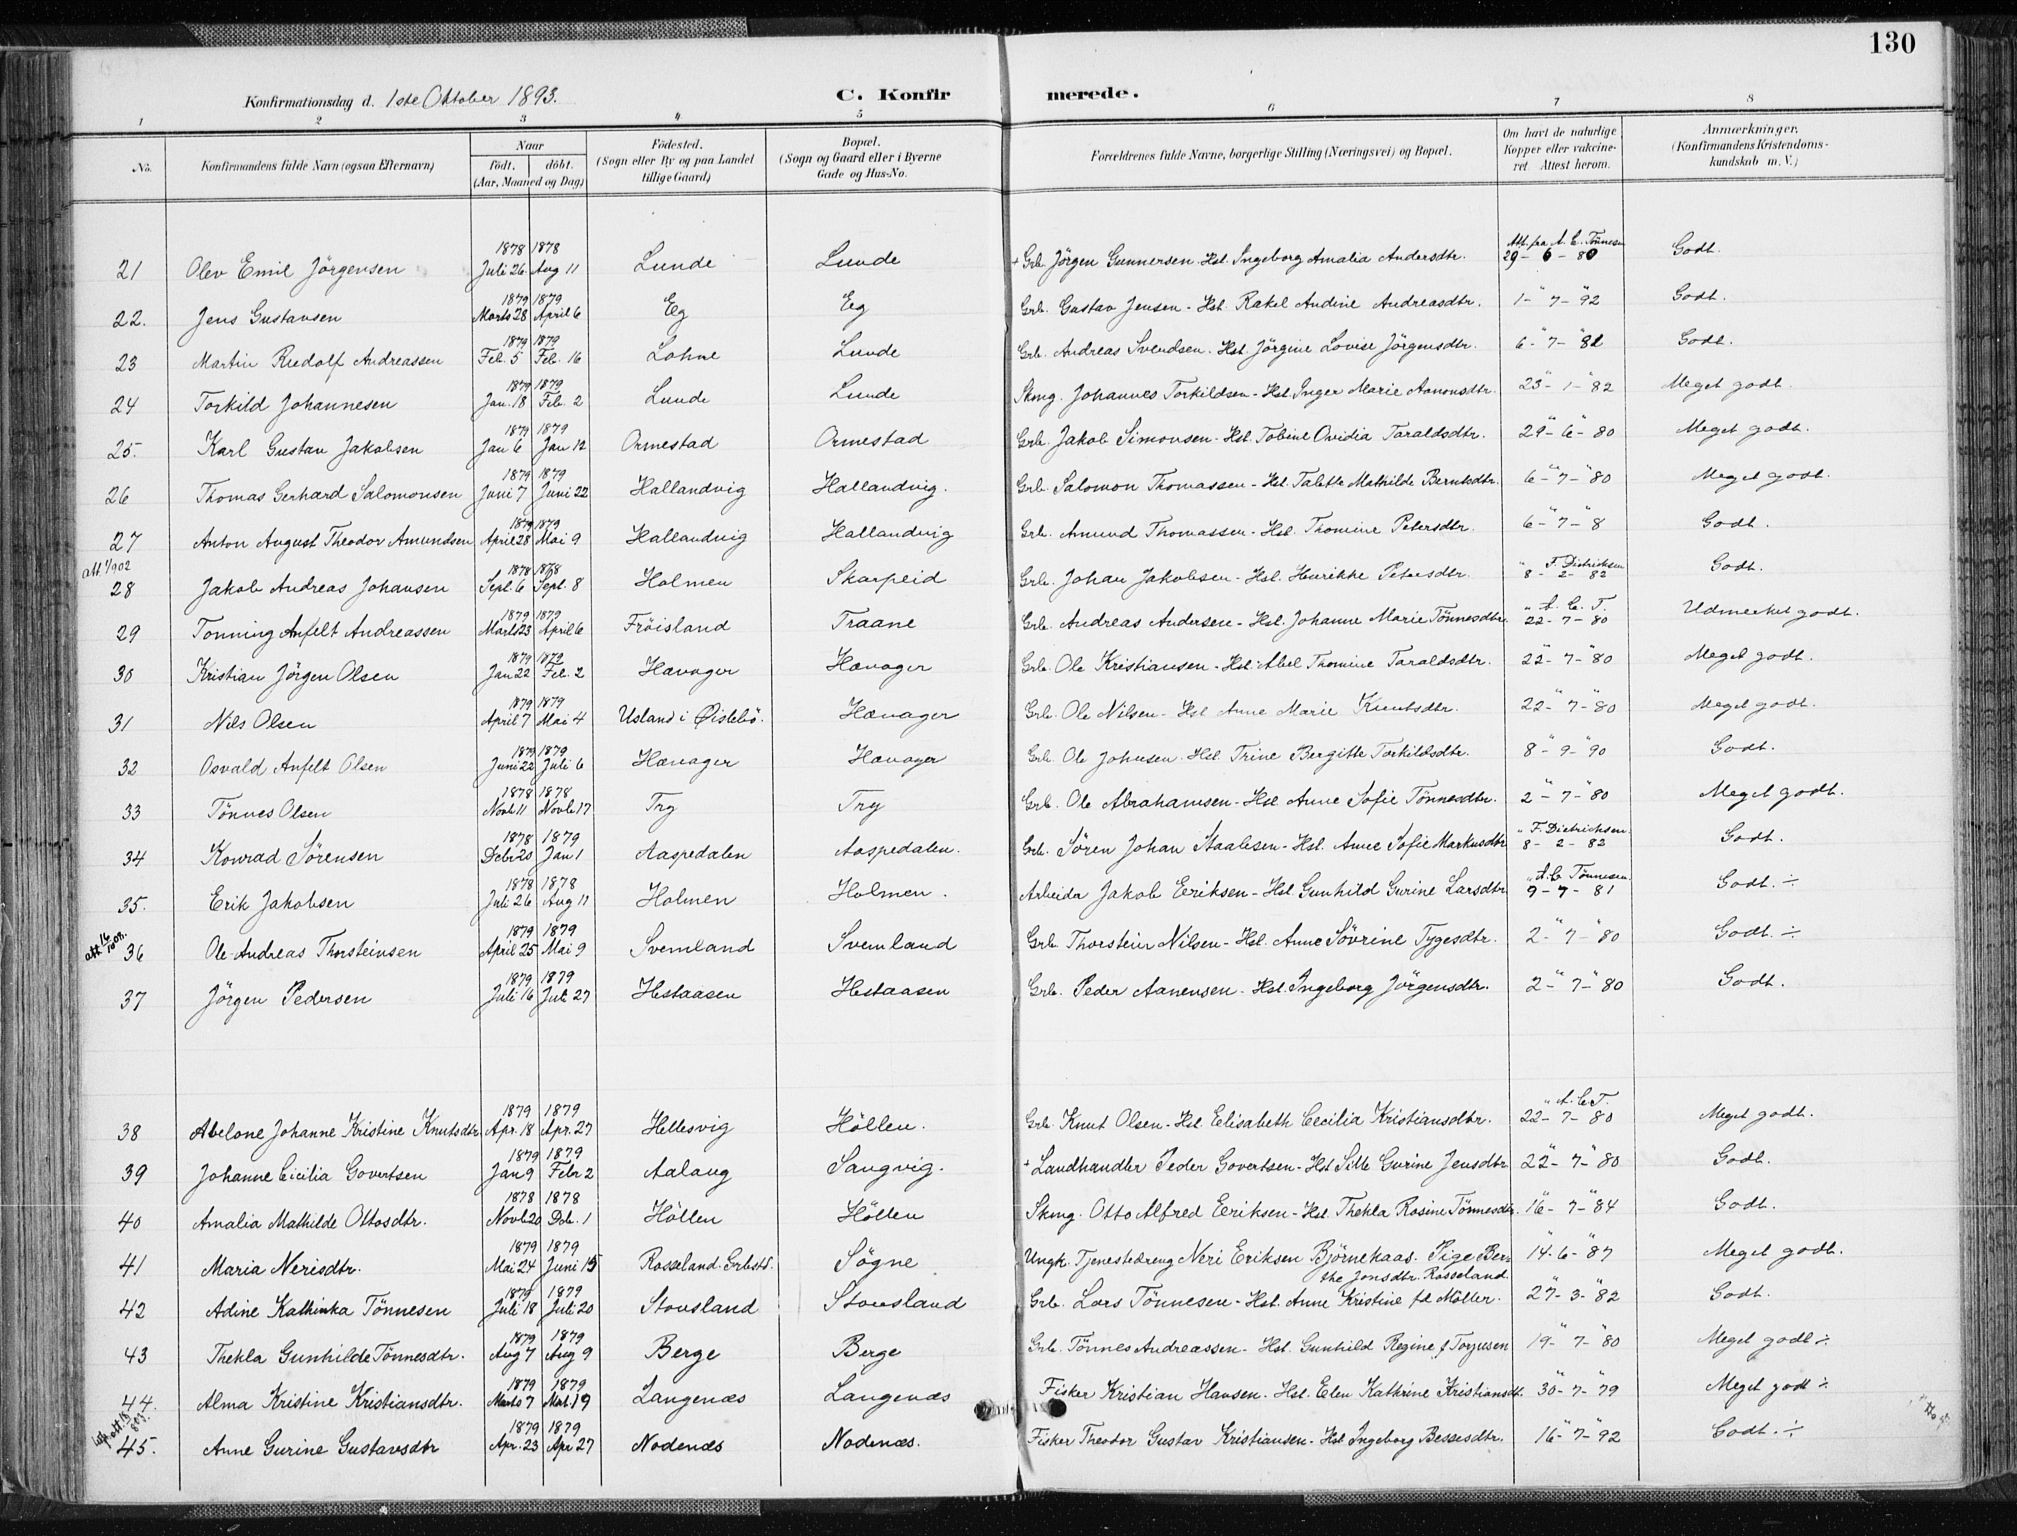 130
Konfirmationsdag d. 1ste Oktober 1893.
C. Konfirmerede.
1 2 3 4 5 6 7 8
No. Konfirmandens fulde Navn (ogsaa Efternavn) Naar født, døbt. (Aar, Maaned og Dag) Födested. (Sogn eller By og paa Landet tillige Gaard) Bopæl. (Sogn og Gaard eller i Byerne Gade og Hus-No. Forældrenes fulde Navne, borgerlige Stilling (Næringsvei) og Bopæl. Om havt de naturlige Kopper eller vakcineret Attest herom. Anmærkninger. (Konfirmandens Kristendomskundskab m. V.)
21 Olev Emil Jörgensen 1878 Juli 26. 1878 Aug 11 Lunde Lunde + Grb. Jörgen Gunnersen - Hst. Ingeborg Amalia Andersdtr. Att. fra A. C. Tönnesen 29-6-80 Godt.
22. Jens Gustavsen 1879 Marts 28 1879 April 6 Eg Eg Grb. Gustav Jensen - Hst. Rakel Andine Andreasdtr. 1-"7-"92 Godt.
23 Martin Rudolf Andreassen 1879 Feb. 5 1879 Feb. 16 Lohne Lunde Grb. Andreas Svendsen - Hst. Jörgine Lovise Jörgensdtr. 6-"7-"82 Godt.
24 Torkild Johannesen 1879 Jan. 18 1879 Feb. 2 Lunde Lunde Skmg. Johannes Torkildsen - Hst. Inger Marie Aanonsdtr. 23-"1-"82 Meget godt.
25. Karl Gustav Jakobsen 1879 Jan 6 1879 Jan 12 Ormestad Ormestad Grb. Jakob Simonsen - Hst. Tobine Ovidia Taraldsdtr. 29-"6-"80 Meget godt.
26 Thomas Gerhard Salomonsen 1879 Juni 7 1879 Juni 22 Hallandvig Hallandvig. Grb. Salomon Thomassen - Hst. Talette Mathilde Berntsdtr. 6-"7-"80 Meget godt.
27 Anton August Theodor Amundsen 1879 April 28 1879 Mai 9 Hallandvig Hallandvig Grb. Amund Thomassen - Hst. Thomine Petersdtr. 6-"7-"8 Godt.
att. 1/902
28 Jakob Andreas Johansen 1878 Sept. 6 1878 Sept. 8 Holmen Skarpeid Grb. Johan Jakobsen - Hst. Henrikke Petersdtr. " F. Dietrichsen 8-2-82 Godt.
29 Tonning Anfelt Andreassen 1879 Marts 23 1879 April 6 Fröisland Traane Grb. Andreas Andersen - Hst. Johanne Marie Tönnesdtr. " A. C. T. 22-7-80 Udmerket godt.
30 Kristian Jörgen Olsen 1879 Jan 22 1879 Feb. 2 Hævager Hævager Grb. Ole Kristiansen - Hst. Abel Thomine Taraldsdtr. 22-"7-"80 Meget godt.
31 Nils Olsen 1879 April 7 1879 Mai 4 Usland i Øislebö. Hævager Grb. Ole Nilsen - Hst Anne Marie Knutsdtr. 22-"7-"80 Meget godt.
32 Osvald Anfelt Olsen 1879 Juni 22 1879 Juli 6 Hævager Hævager Grb. Ole Johnsen - Hst. Trine Bergitte Torkildsdtr. 8-"9-"90 Godt.
33 Tönnes Olsen 1878 Novb. 11 1878 Novb. 17 Try Try Grb. Ole Abrahamsen - Hst Anne Sofie Tönnesdtr. 2-"7-"80 Meget godt.
34 Konrad Sörensen 1878 Debr 20 1879 Jan 1 Aaspedalen Aaspedalen. Grb. Sören Johan Staalesen - Hst. Anne Sofie Markusdtr " F. Dietrichsen. 8-2-82 Godt.
35. Erik Jakobsen 1878 Juli 26 1878 Aug 11 Holmen Holmen. Arbeider Jakob Eriksen - Hst Gunhild Gurine Larsdtr " A. C Tönnesen. 9-7-81 Godt. ÷
att. 16/10 08. 36 Ole Andreas Thorsteinsen 1879 April 25 1879 Mai 9 Svemland Svemland Grb. Thorstein Nilsen - Hst. Anne Sövrine Tygesdtr. 2-"7-"80 Godt. ÷
37 Jörgen Pedersen 1879 Juli 16 1879 Juli 27 Hestaasen Hestaasen Grb. Peder Aanensen - Hst. Ingeborg Jörgensdtr. 2-"7-"80 Godt.
38 Abelone Johanne Kristine Knutsdtr. 1879 Apr. 18 1879 Apr. 27 Hellesvig Höllen. Grb. Knut Olsen - Hst. Elisabeth Cecilia Kristiansdtr. " A. C. T. 22-7-80 Meget godt.
39 Johanne Cicilia Govertsen 1879 Jan 9 1879 Febr 2 Aalaug Sangvig. + Landhandler Peder Govertsen - Hst Sille Gurine Jensdtr 22-"7-"80 Godt.
40 Amalia Mathilde Ottosdtr. 1878 Novb 20 1878 Deb. 1 Höllen Höllen Skmg. Otto Alfred Eriksen - Hst. Thekla Rosine Tönnesdtr. 16-"7-"84 Godt.
41 Maria Nerisdtr. 1879 Mai 24 1879 Juni 15 Rosseland. Grbst. Sögne Ungk. Tjenestedreng Neri Eriksen Björnekaas. Pige Berthe Jonsdtr. Rosseland. 14-"6-"87 Meget godt.
42 Adine Kathinka Tönnesen 1879 Juli 18 1879 Juli 20 Stousland Stousland Grb. Lars Tönnesen - Hst. Anne Kristine fd Möller. 27-"3-"82 Godt.
43 Thekla Gunhilde Tönnesdtr. 1879 Aug 7 1879 Aug 9 Berge Berge Grb. Tönnes Andreassen - Hst. Gunhild Regine f Torjusen 19-"7-"80 Meget godt ÷
44. Alma Kristine Kristiansdtr. 1879 Marts 7 1879 Mat. 19 Langenæs Langenæs Fisker Kristian Hansen - Hst. Elen Kathrine Kristiansdt. 30-"7-"79 Meget godt ÷
45. Anne Gurine Gustavsdtr 1879 Apr. 23 1879 Apr 27 Nodenæs Nodenæs. Fisker Theodor Gustav Kristiansen - Hst Ingeborg Bessesdtr. 16-"7-"92 Godt. ÷